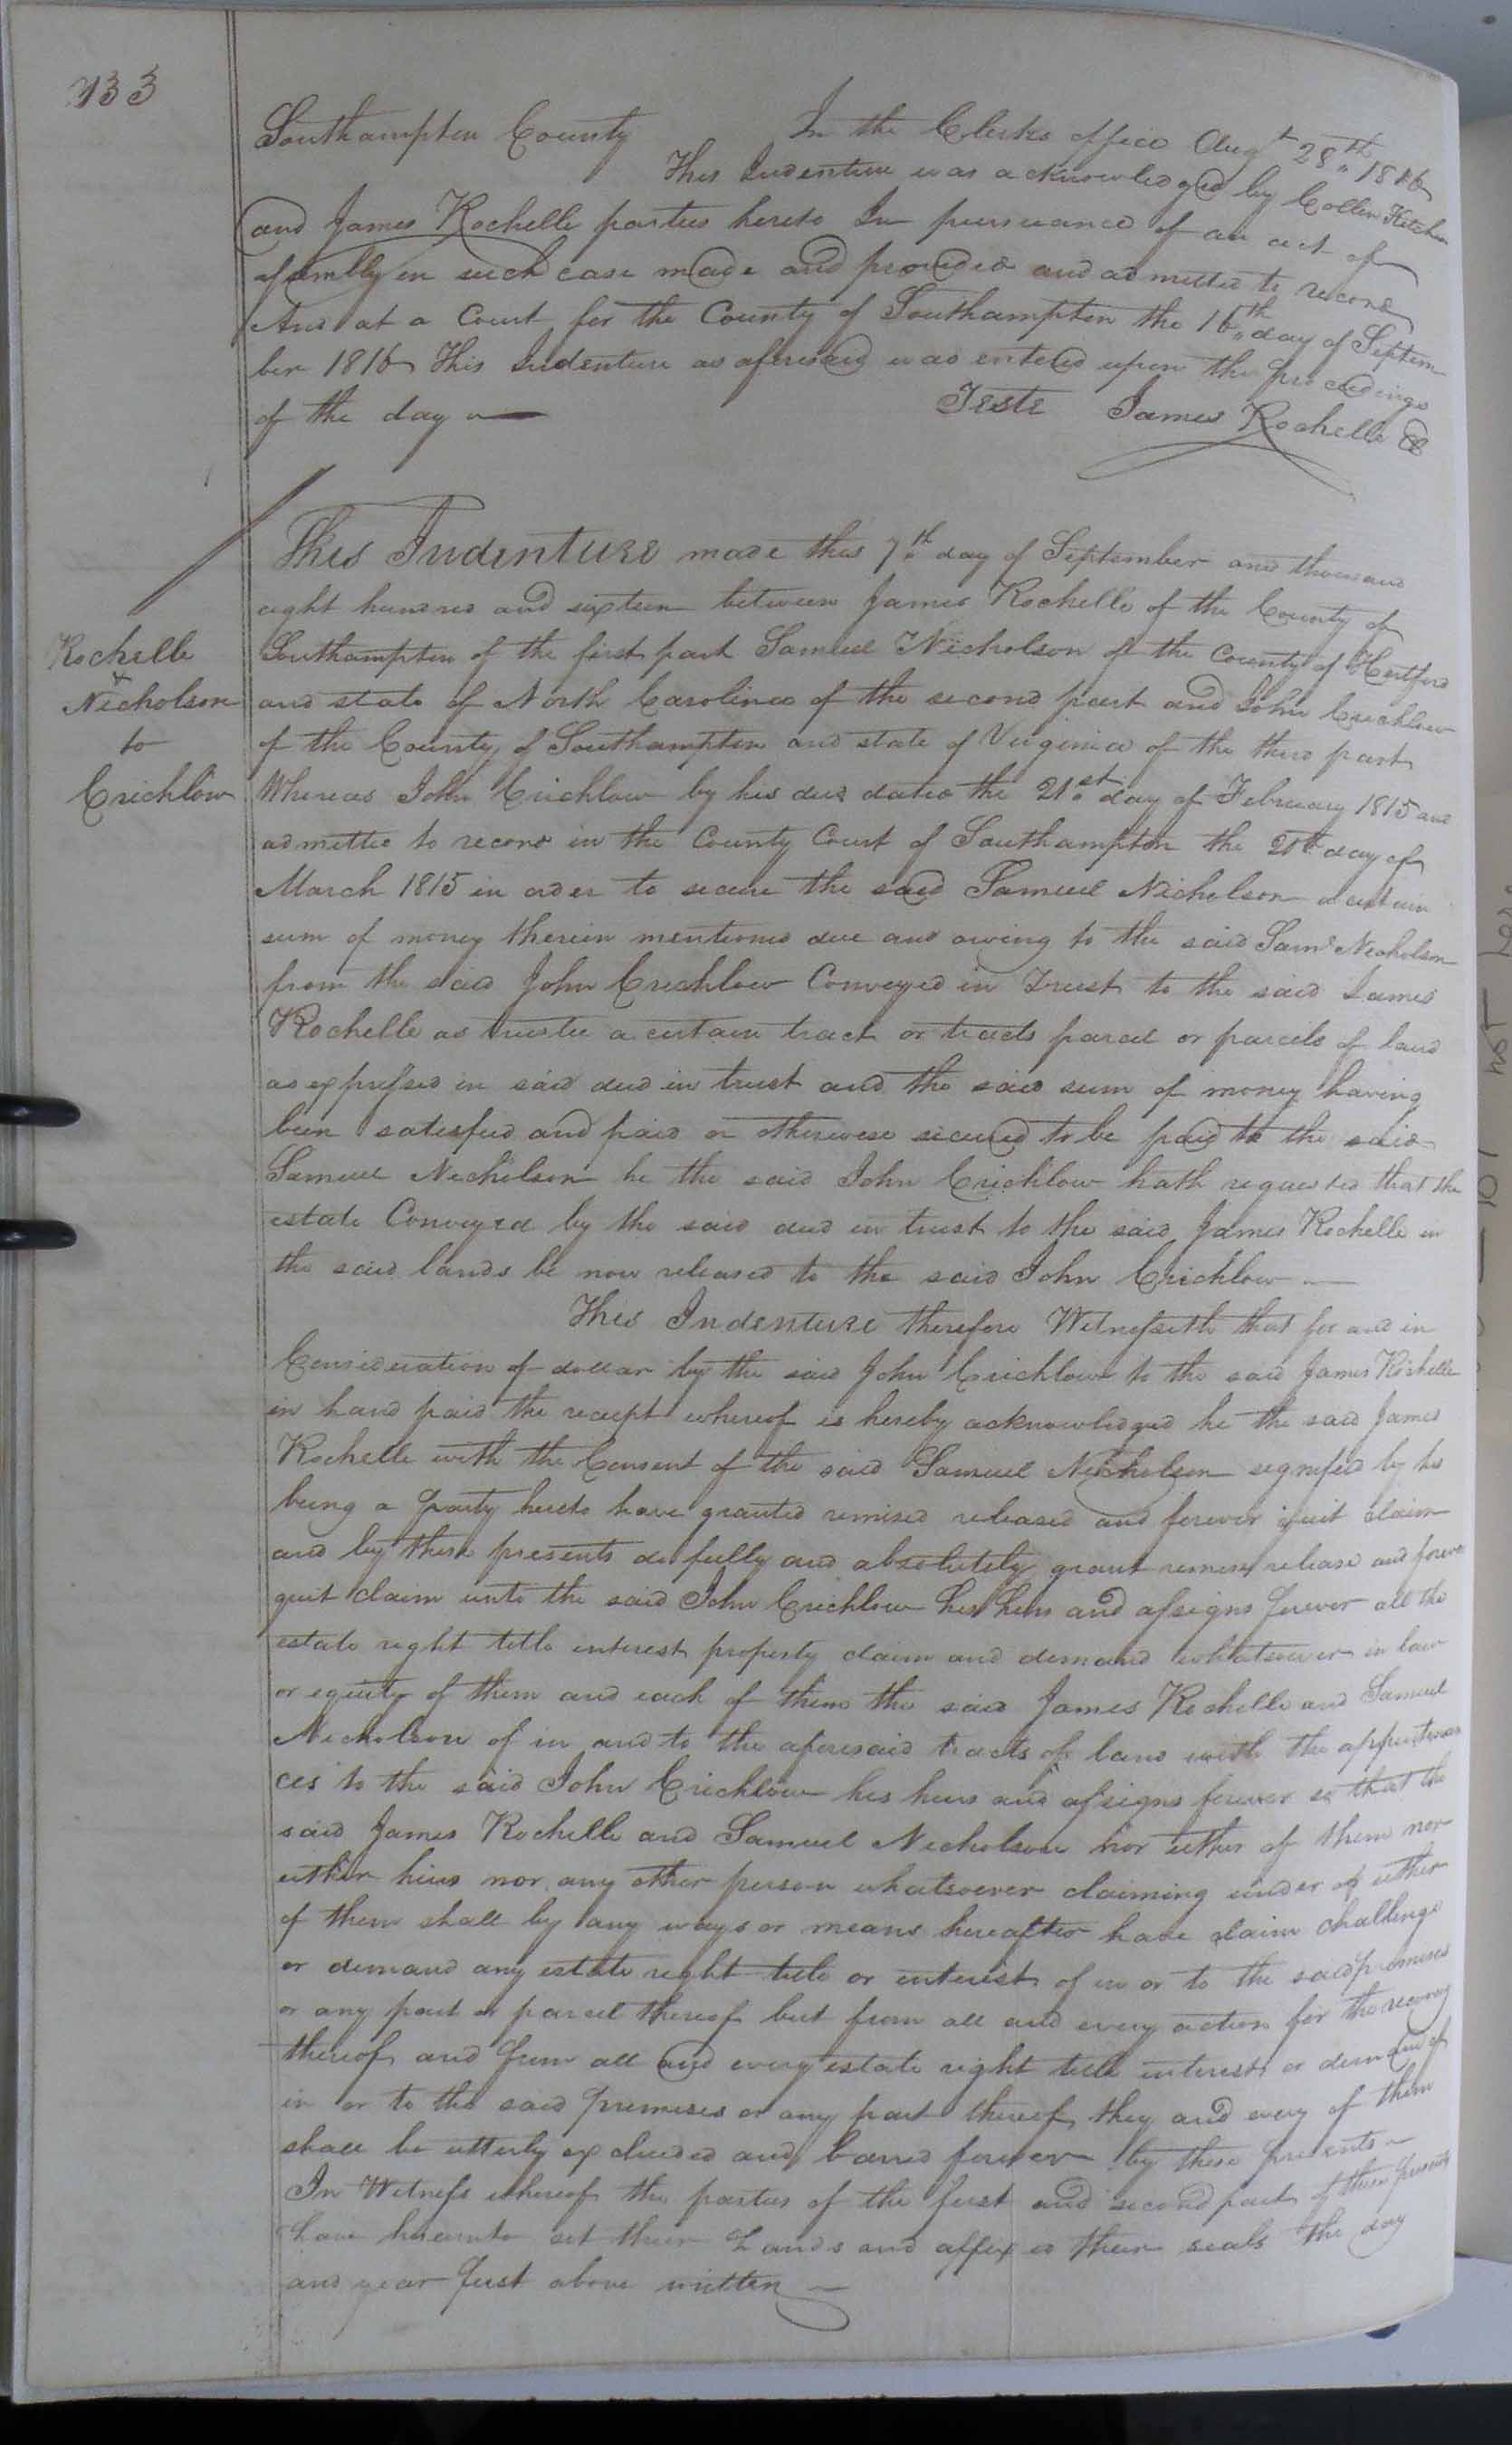 133
Southampton County In the Clerks office Augt 28th 1816
This Indenture was acknowledged by Collin Kitchen
and James Rochelle parties hereto In pursuance of an act of
assembly in such case made and provided and admitted to record
And at a Court for the County of Southampton the 16th day of Septem
ber 1816 This Indenture as aforesaid was entered upon the proceedings
of the day
Teste James Rochelle
This Indenture made this 7th day of September one thousand
eight hundred and sixteen between James Rochelle of the County of
Southampton of the first part Samuel Nicholson of the County of Hertford
and state of North Carolina of the second part and John Crichlow
of the County of Southampton and state of Virginia of the third part
Rochelle
&
Nicholson
to
Crichlow
Whereas John Crichlow by his deed dated the 21st day of February 1815 and
admitted to record in the County Court of Southampton the 20th day of
March 1815 in order to secure the said Samuel Nicholson a certain
sum of money therein mentioned due and owing to the said Saml Nicholson
from the said John Crichlow Conveyed in Trust to the said James
Rochelle as trustee a certain tract or tracts parcel or parcels of land
as expressed in said deed in trust and the said sum of money having
been satisfied and paid or otherwise secured to be paid to the said
Samuel Nicholson he the said John Crichlow hath requested that the
estate Conveyed by the said deed in trust to the said James Rochelle in
the said lands be now released to the said John Crichlow
This Indenture therefore Witnesseth that for and in
Consideration of dollar by the said John Crichlow to the said James Rochelle
in hand paid the receipt whereof is hereby acknowledged he the said James
Rochelle with the Consent of the said Samuel Nicholson signified by his
being a party hereto have granted remised released and forever quit claim
and by these presents do fully and absolutely grant remise release and forever
quit claim unto the said John Crichlow his heirs and assigns forever all the
estate right title interest property claim and demand whatsoever in law
or equity of them and each of them the said James Rochelle and Samuel
Nicholson of in and to the aforesaid tracts of land with the appurtenan
ces to the said John Crichlow his heirs and assigns forever so that the
said James Rochelle and Samuel Nicholson nor either of them nor
either heirs nor any other person whatsoever claiming under of either
of them shall by any ways or means hereafter have claim challenge
or demand any estate right title or interest of in or to the said premises
or any part or parcel thereof but from all and every action for the recovery
thereof and from all and every estate right title interest or demand of
in or to the said premises or any part thereof they and every of them
shall be utterly excluded and barred forever by these presents
In Witness whereof the parties of the first and second part of these presents
have hereunto set their hands and affixed their seals the day
and year first above written